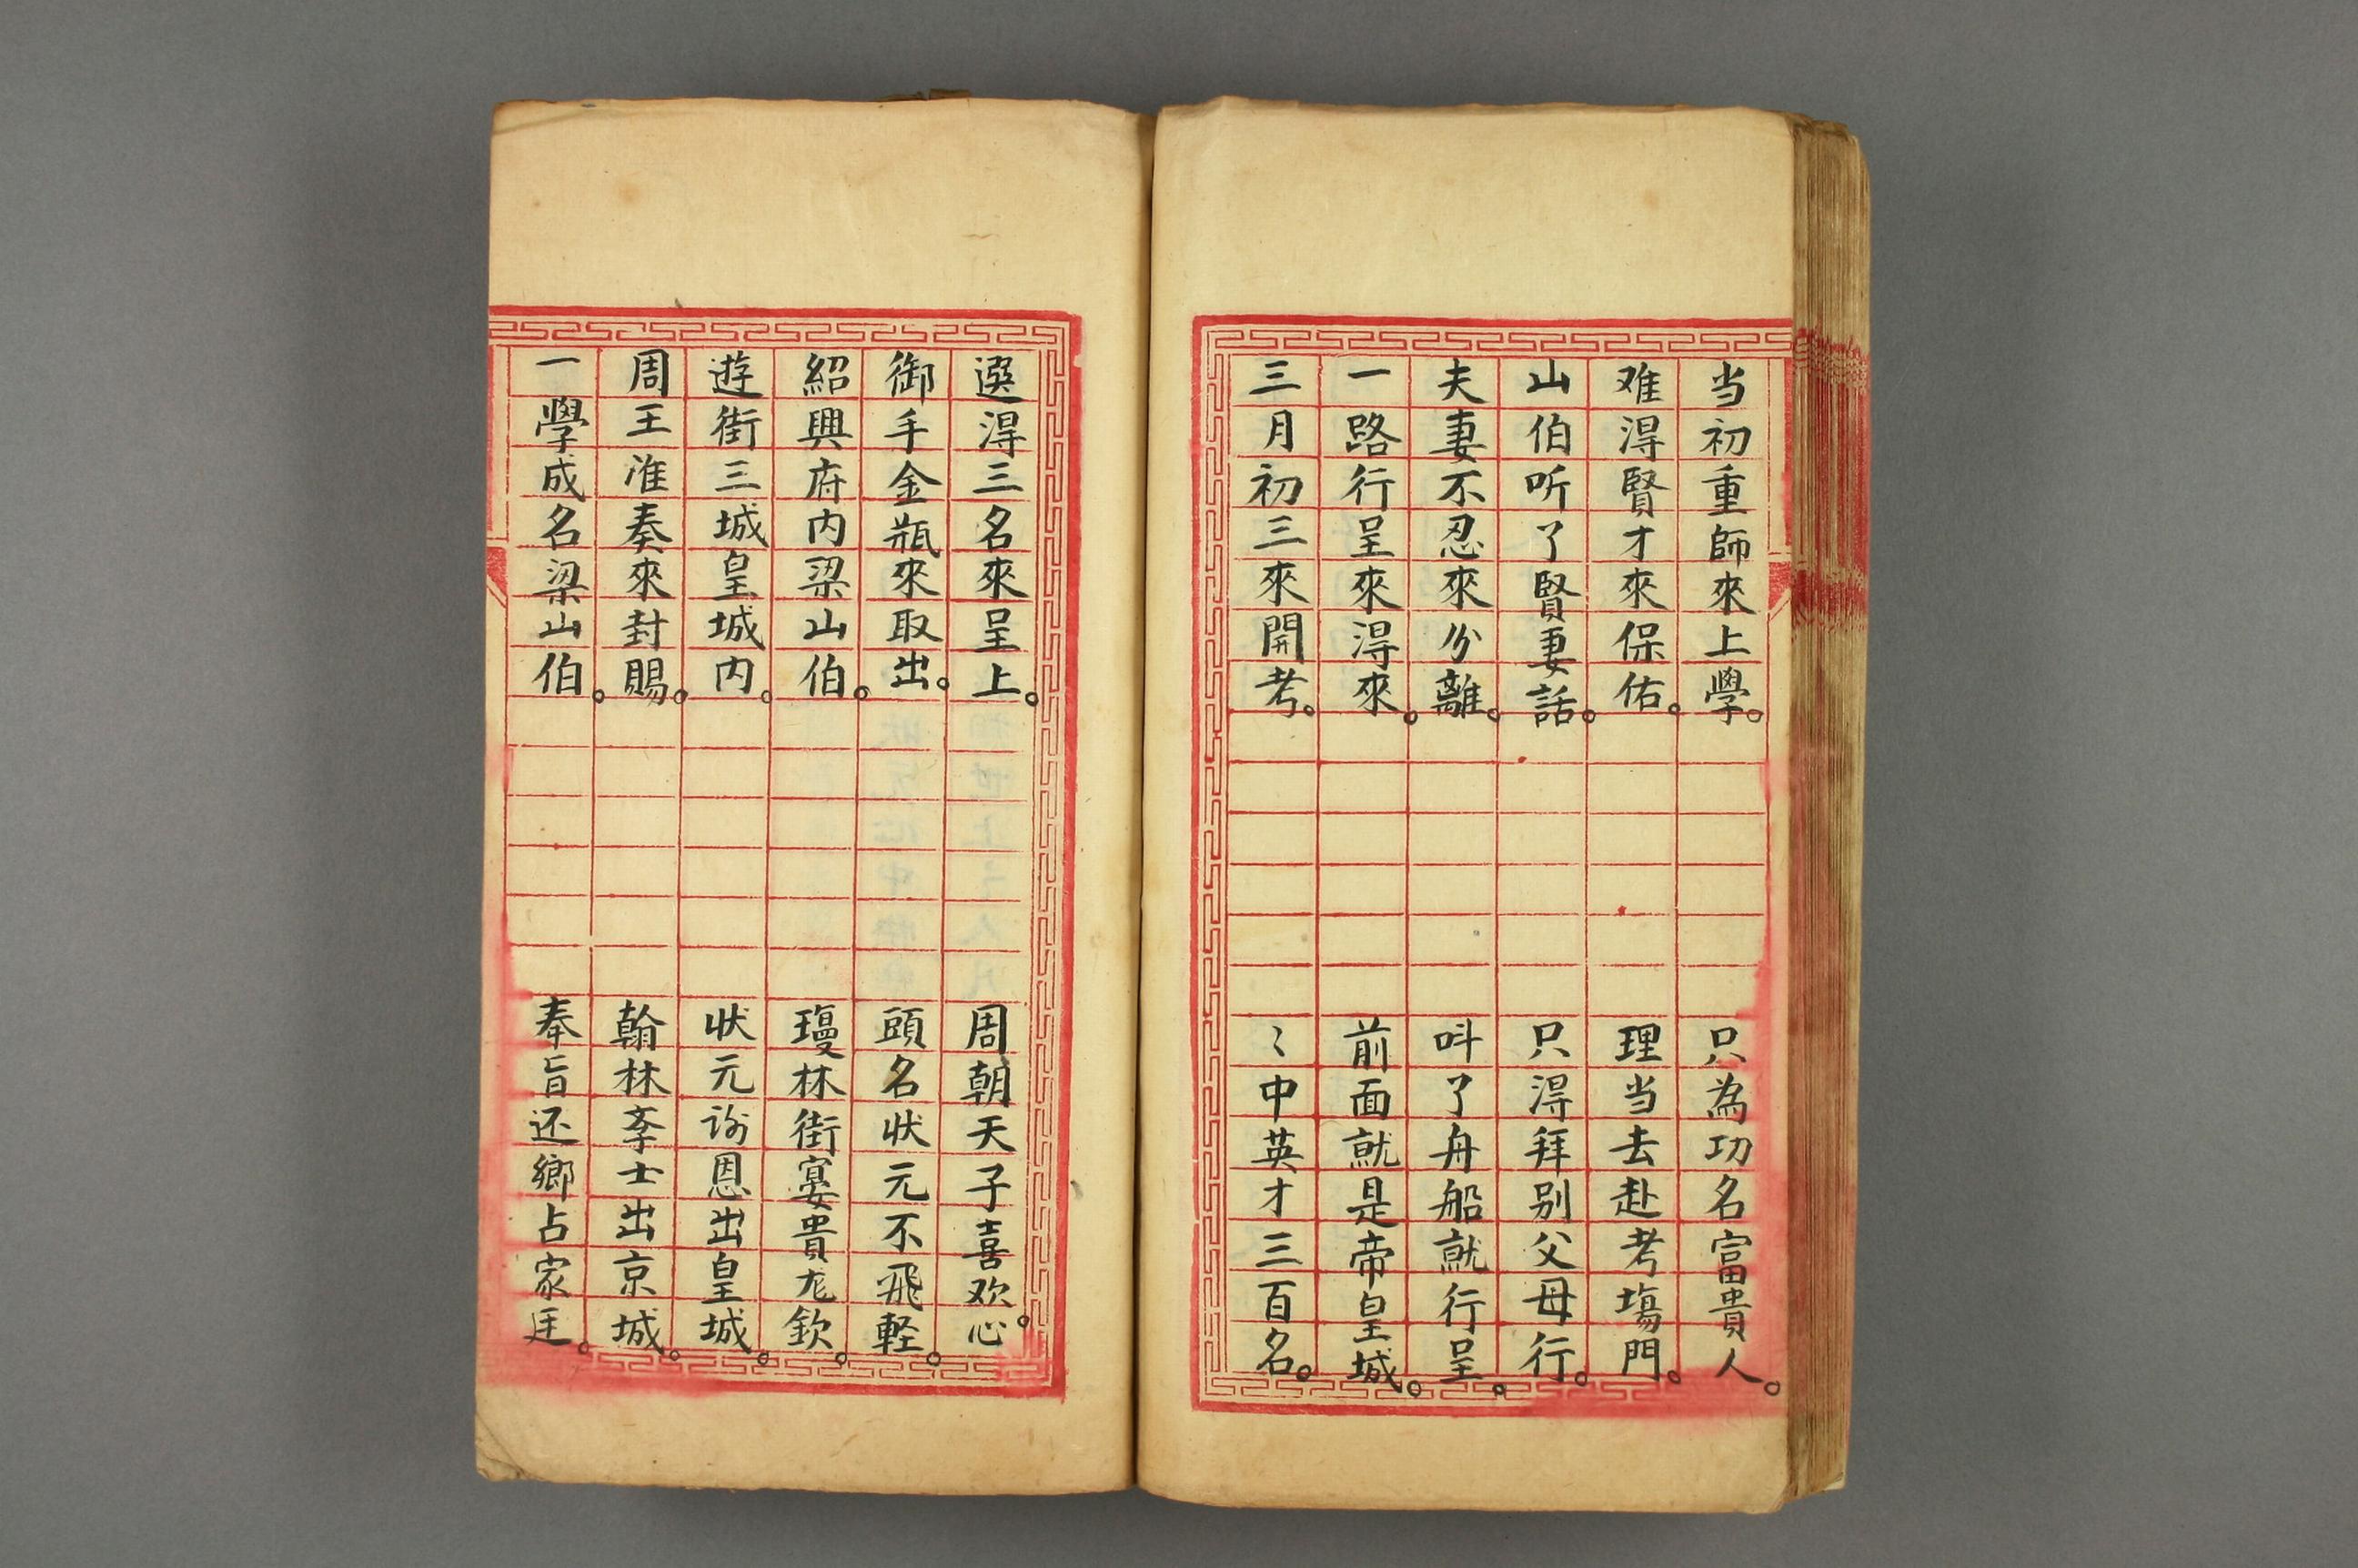 当初重師來上學。只為功名富貴人。
难淂賢才來保佑。理当去赴考塲門。
山伯听了賢妻話。只淂拜别父母行。
夫妻不忍來分離。呌了舟船就行呈。
一路行呈來淂來。前面就是帝皇城。
三月初三來開考。〻中英才三百名。
選淂三名來呈上。周朝天子喜欢心。
御手金瓶來取出。頭名状元不飛軽。
紹興府内梁山伯。瓊林街宴貴尨欽。
遊街三城皇城内。状元谢恩出皇城。
周王准奏來封賜。翰林斈士出京城。
一學成名梁山伯。奉旨还鄉占家廷。